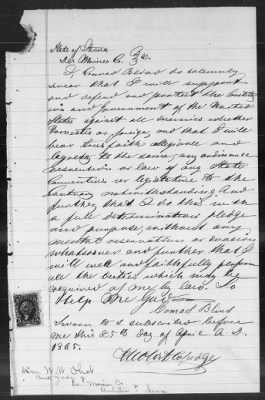 State of Iowa
Des Moines Co. } SS.
I Conrad Blind do solemnly
swear that I will support
and defend and protect the Constitu
ion and Government of the United
States against all enemies whether
Domestic or foreign, and that I will
bear true faith allegiance and
loyalty to the same, any ordinance
resolution or law of any State
Convention or Legislature to the
contrary notwithstanding And
further, that I do this with
a full determination, pledge
and purpose, without any
mental reservation or evasion
whatsoever and further that I
will well and faithfully perform
all the duties which may be
required of me by law. So
Help Me God
Conrad Blind
Sworn to & subscribed before
me this 25th Day of April A.D.
1865.
Judge
Co.
Iowa